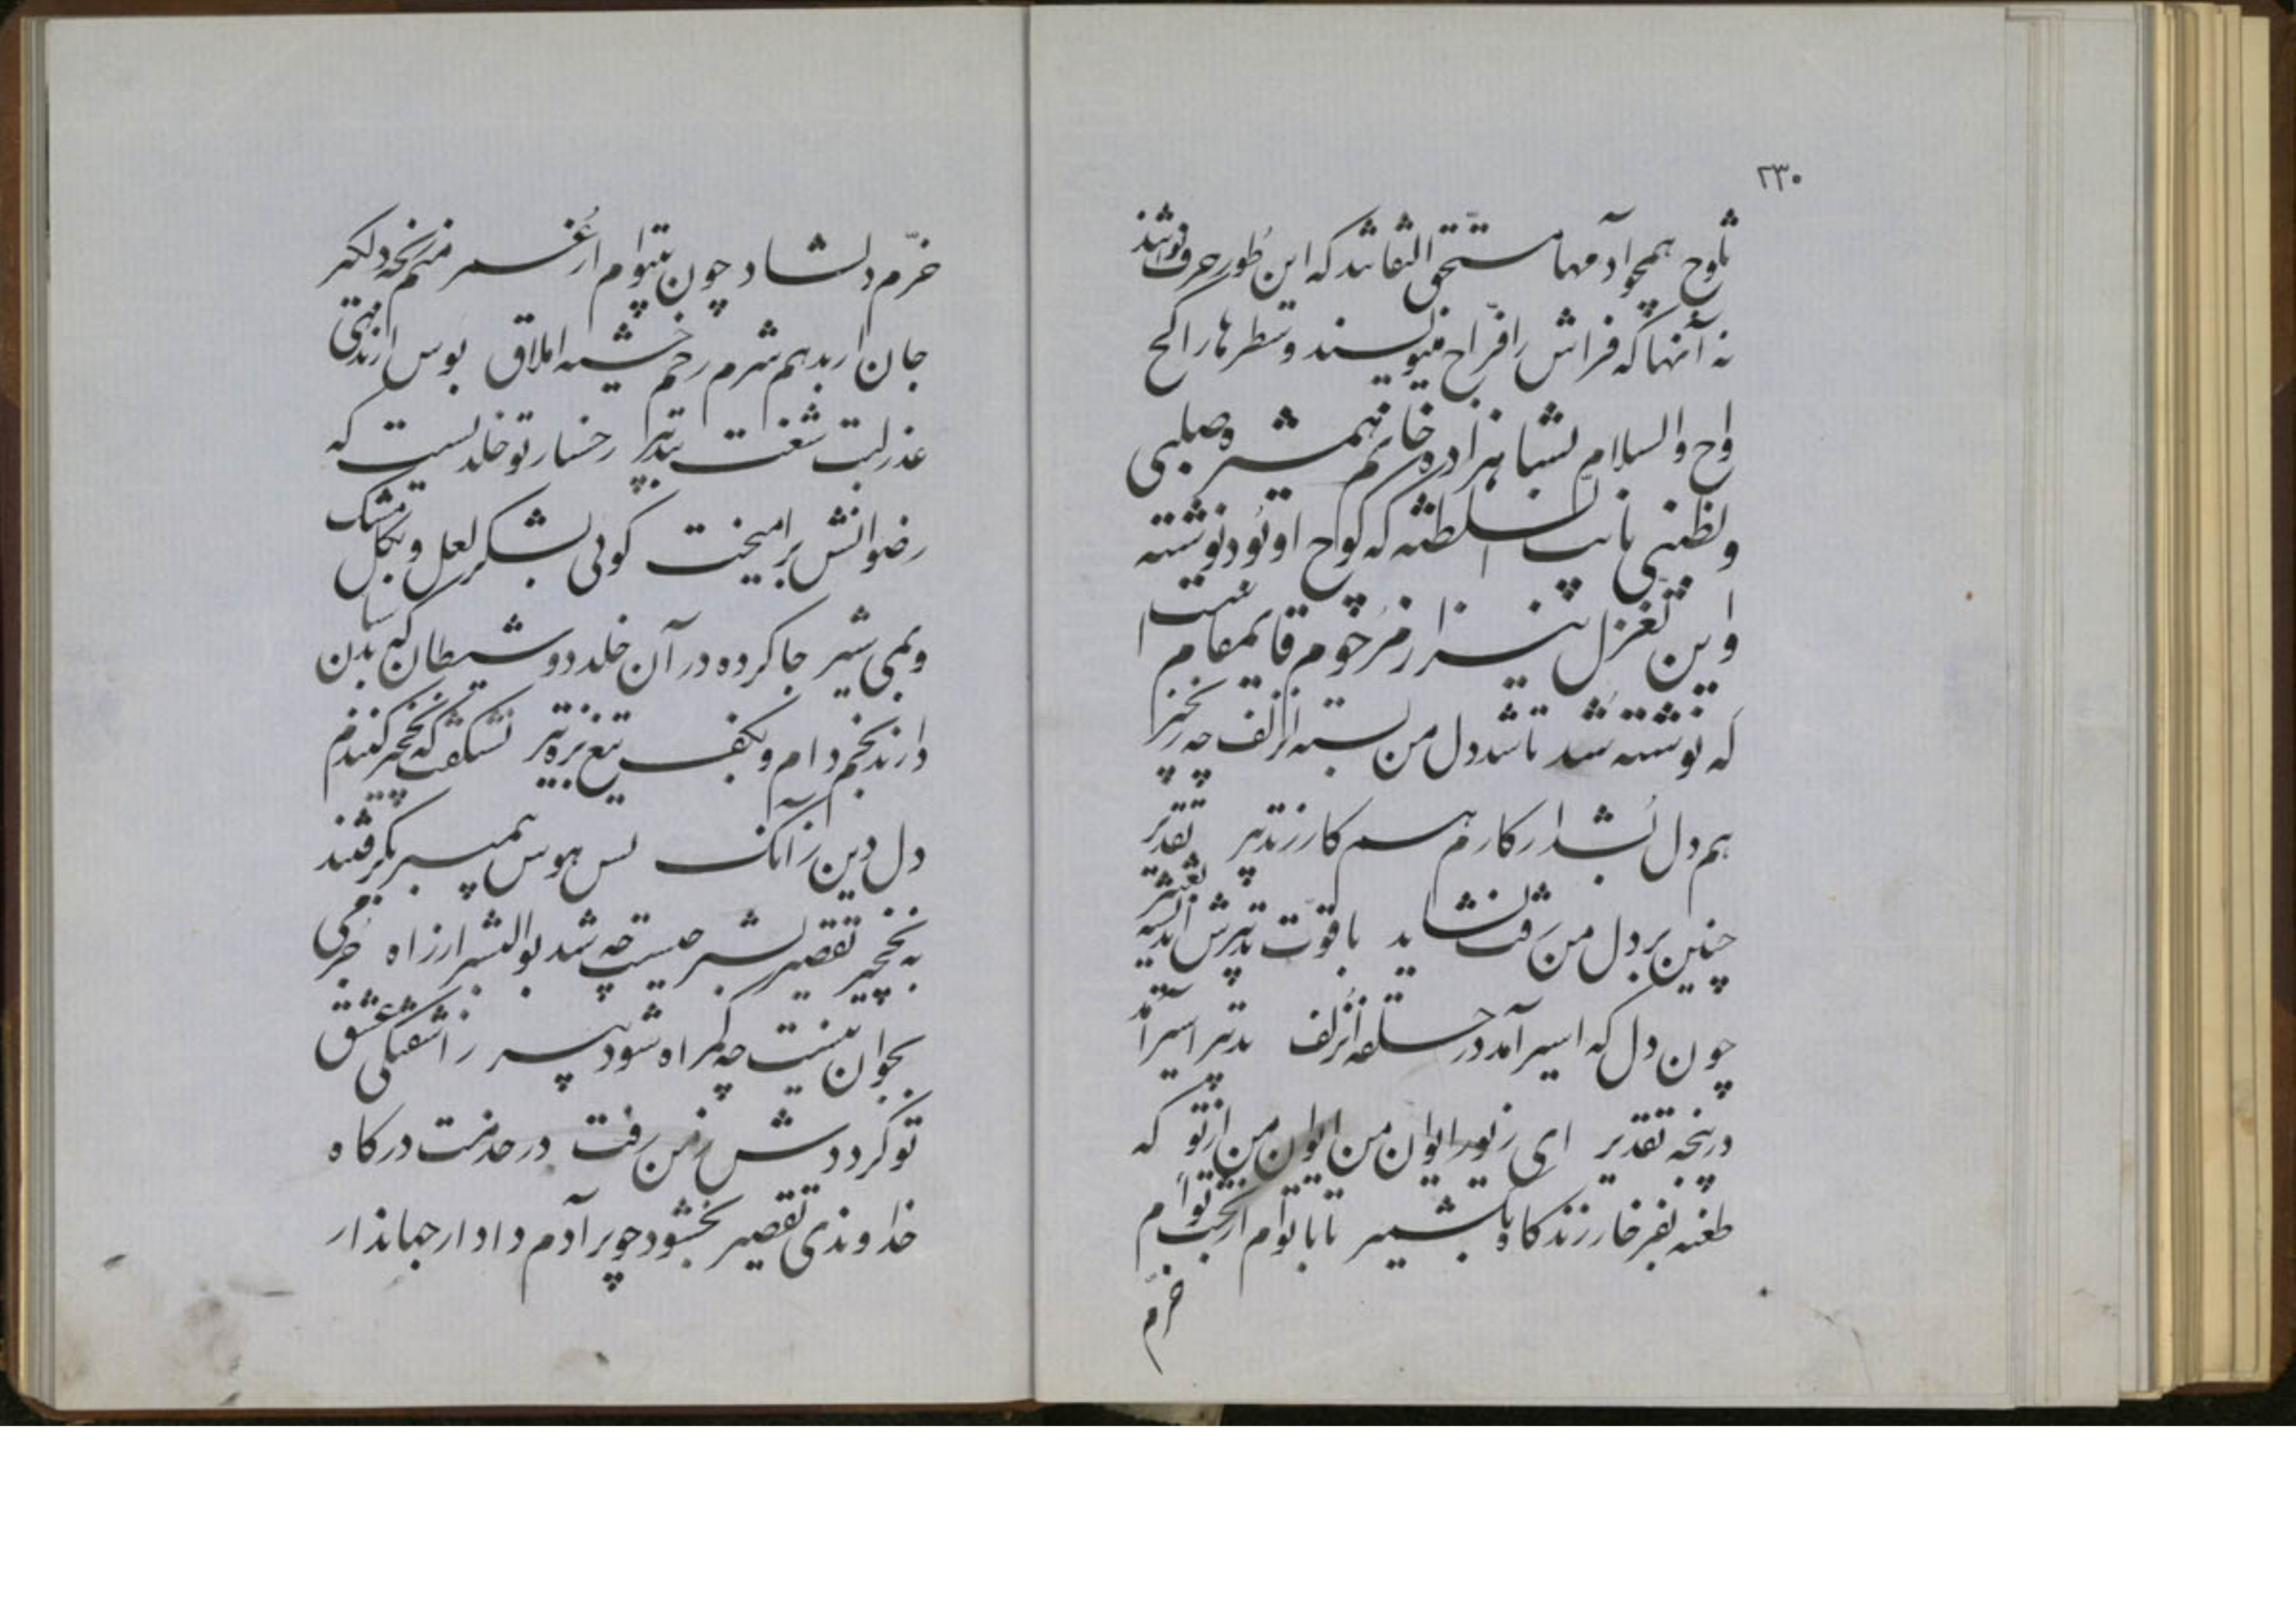 ۲۳۰
ثاوح همچو آدمها مستحق التفاتند که این طور حرف نوشتند
نه آنها که فراش را فراح مینویسند و سطرها را کج
واح والسلام بشاهزاده خانم همشیره صلبی
وبطنی نایب السلطنه که کوح او بود نوشته
واین تغزل نیز از مرحوم قایمقام است
که نوشته شد تا شد دل من بسته آن زلف چو زنجیر
هم دل بشد از کارم هم کار ز تدبیر تقدیر
چنین بر دل من رفت نشاید با قوت تدبیرش اندیشه تغییر
چون دل که اسیر آمد در حلقه آن زلف تدبیر اسیر آمد
در پنجه تقدیر ای زیور ایوان من ایوان من از تو که
طعنه بفرخار زند گاه بکشمیر تا با توام از بخت توام
خرم
خرم و دلشاد چون بیتوام از عمر منم رنجه و دلگیر
جان ار بدهم شرم رخم خشیه املاق بوس ار ندهی
عذر لبت شغت تبذیر رخسار تو خلدیست که
رضوانش برامیخت گویی بشکر لعل و بگل مشک سا
و بمی شیر جا کرده در آن خلد دو شیطان که بدن
دارند بخم دام و بکف تیغ بزه تیر نشگفت که نخجیر کنندم
دل و دین زآنک بس هوش پیمبر بگرفتند
به نخجیر تقصیر بشر چیست چه شد بوالبشر از راه جرمی
بجوان نیست چه گمراه شود پیر ز آشفتگی عشق
تو گر دوش ز من رفت در خدمت درگاه
خداوندی تقصیر بخشود چو بر آدم دادار جهاندار